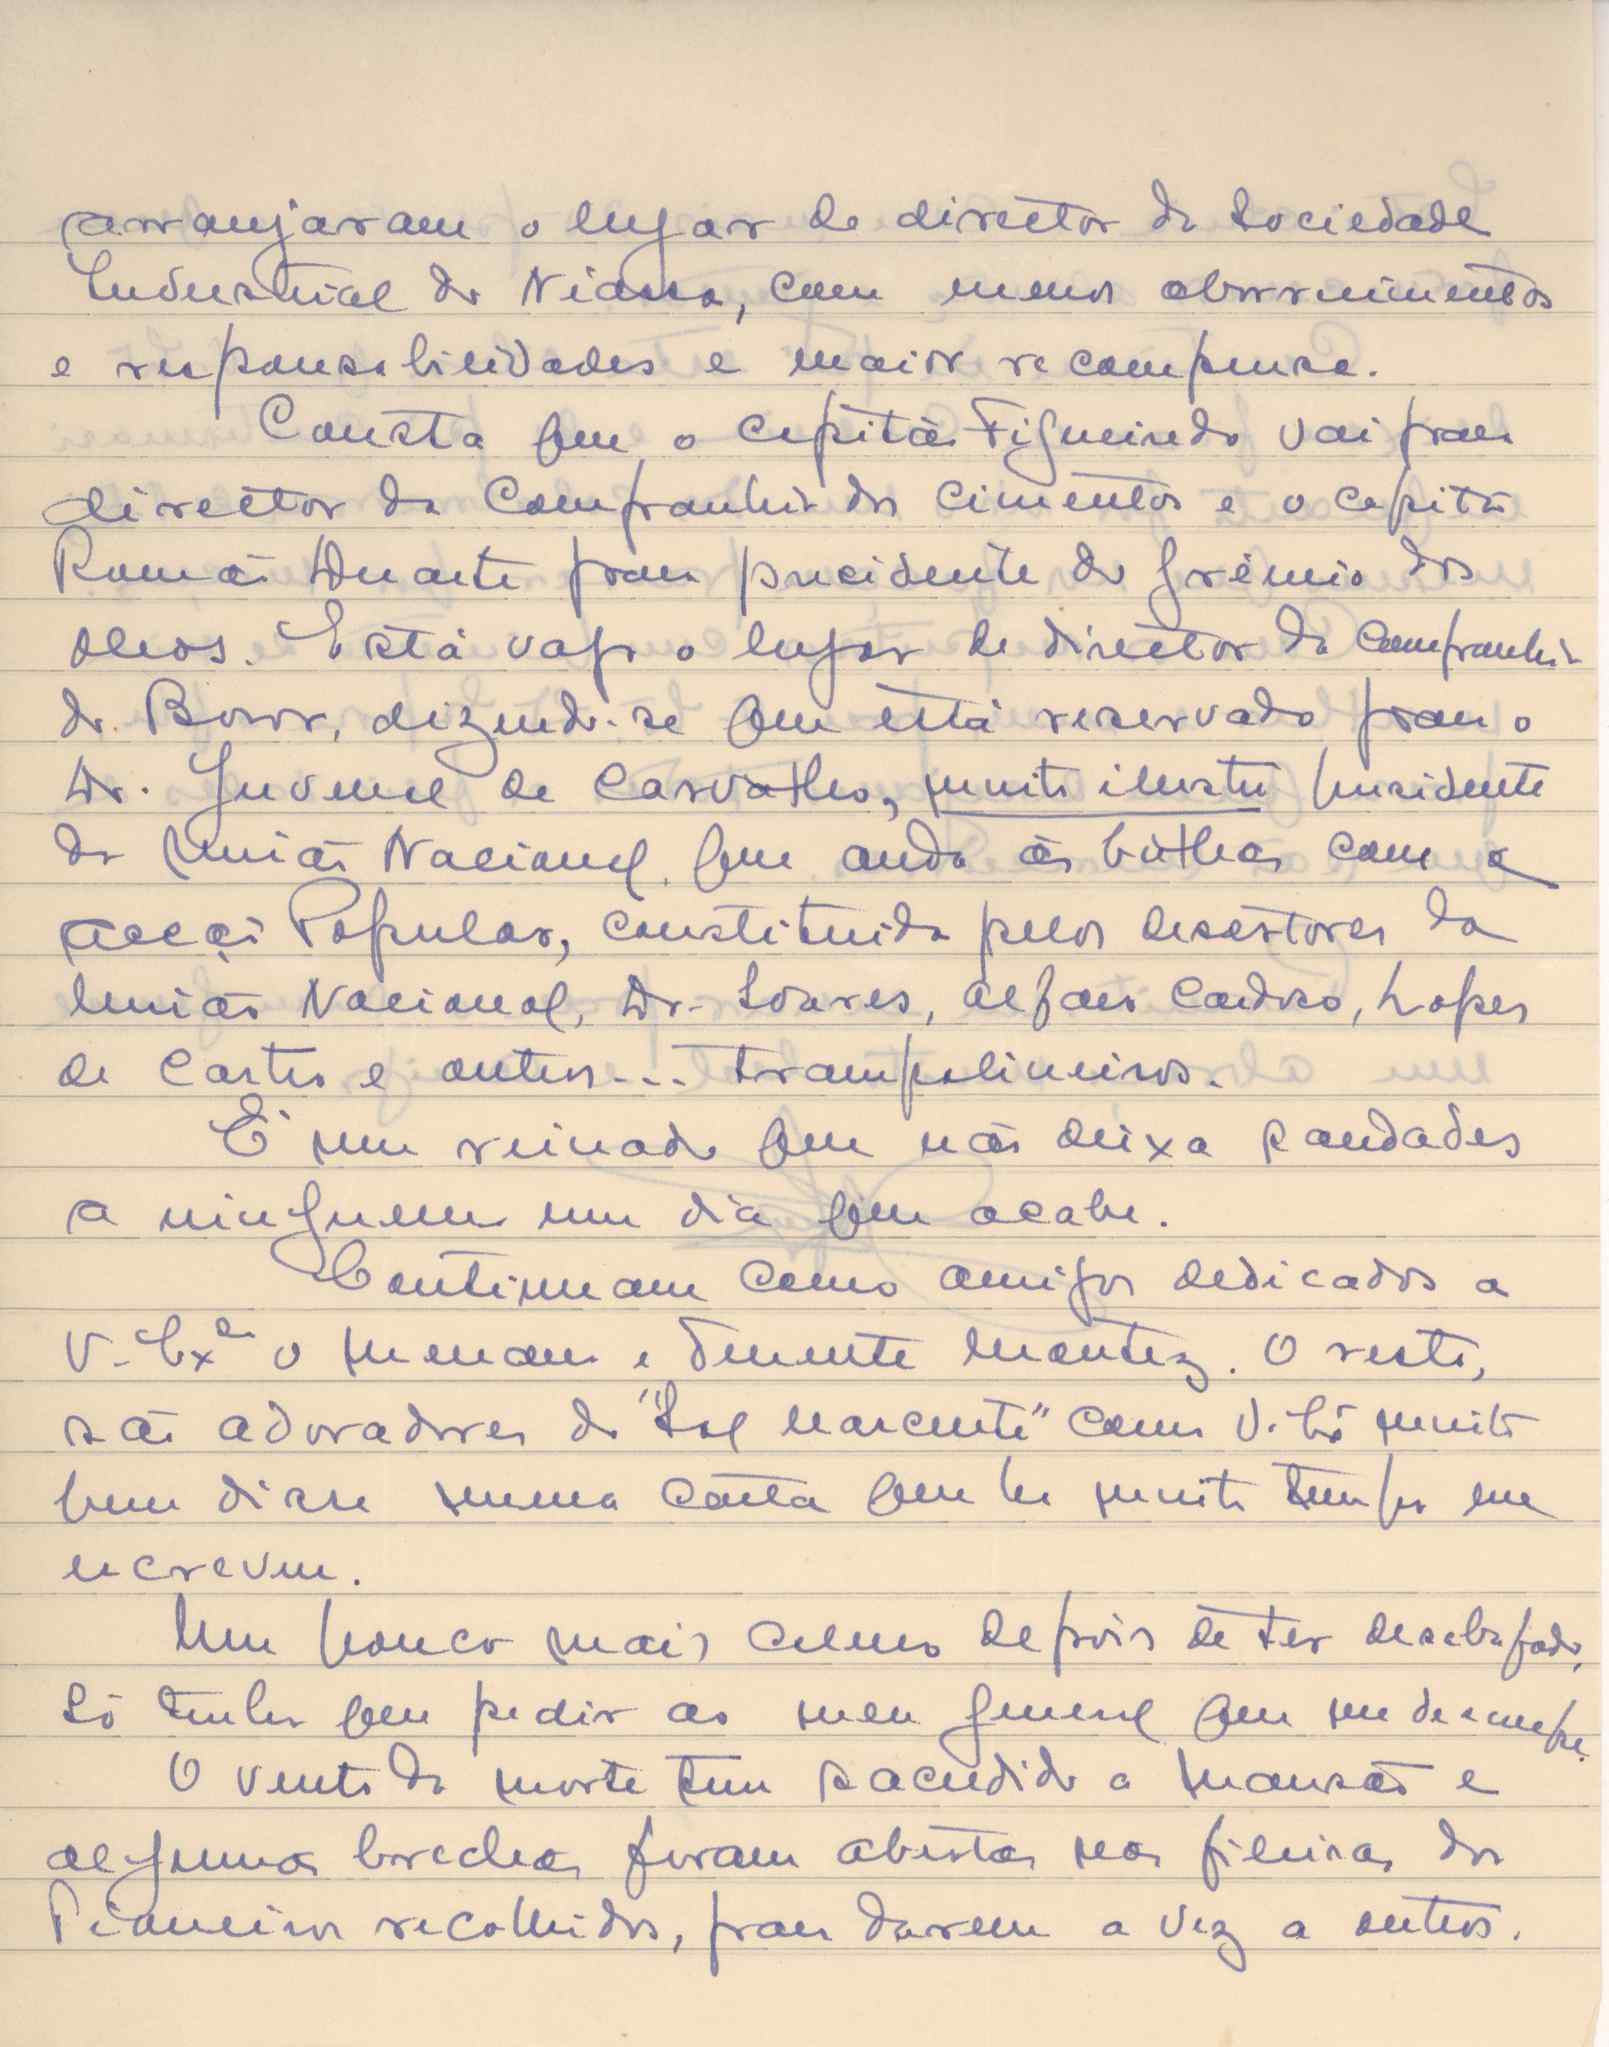 arranjaram o lugar de director da Sociedade
Industrial do Niassa, com menos aborrecimentos
e responsabilidades e maior recompensa.
Consta que o capitão Figueiredo vai para
director da Companhia dos Cimentos e o capitão
Romão Duarte para presidente do Grémio dos
oleos. Está vago o lugar de director da Companhia
do Boror, dizendo-se que está reservado para o
Dr. Juvenal de Carvalho, muito ilustre presidente
da União Nacional que anda às bulhas com a
acção Popular, constituida pelos desertores da
União Nacional, Dr. Soares, Cardoso, Lopes
de Castro e outros... trampolineiros.
É um reinado que não deixa saudades
a ninguem um dia que acabe.
Continuam como amigos dedicados a
V. Exª o e Tenente Montez. O resto,
são adoradores do "Sol nascente" como V. Exª muito
bem disse numa carta que ha muito tempo me
escreveu.
Um pouco mais calmo depois de ter desabafado,
só tenho que pedir ao meu general que me desculpe.
O vento da morte tem sacudido a mansão e
algumas brechas foram abertas nas fileiras dos
Pioneiros recolhidos, para darem a vez a outros.